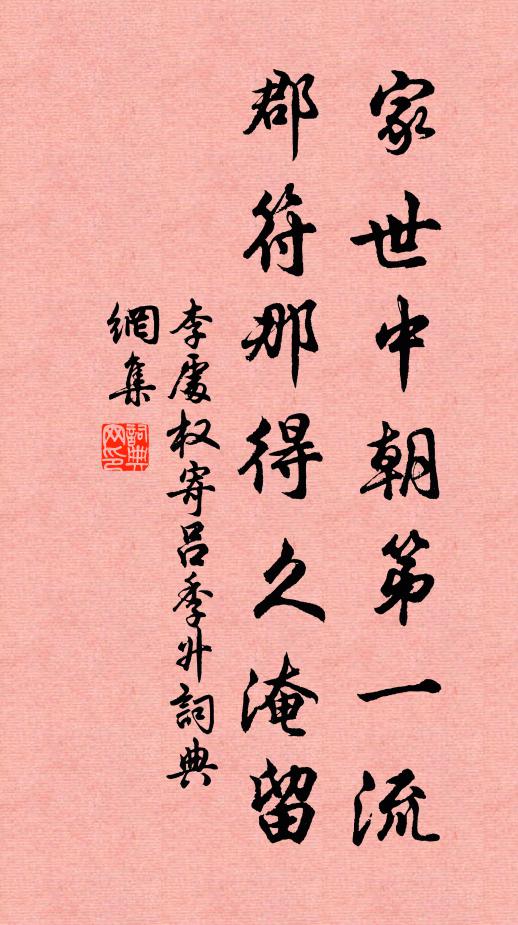 家世中朝第一流
郡符那得久淹留
李處权寄吕季升詞典
網集
詞典
网印